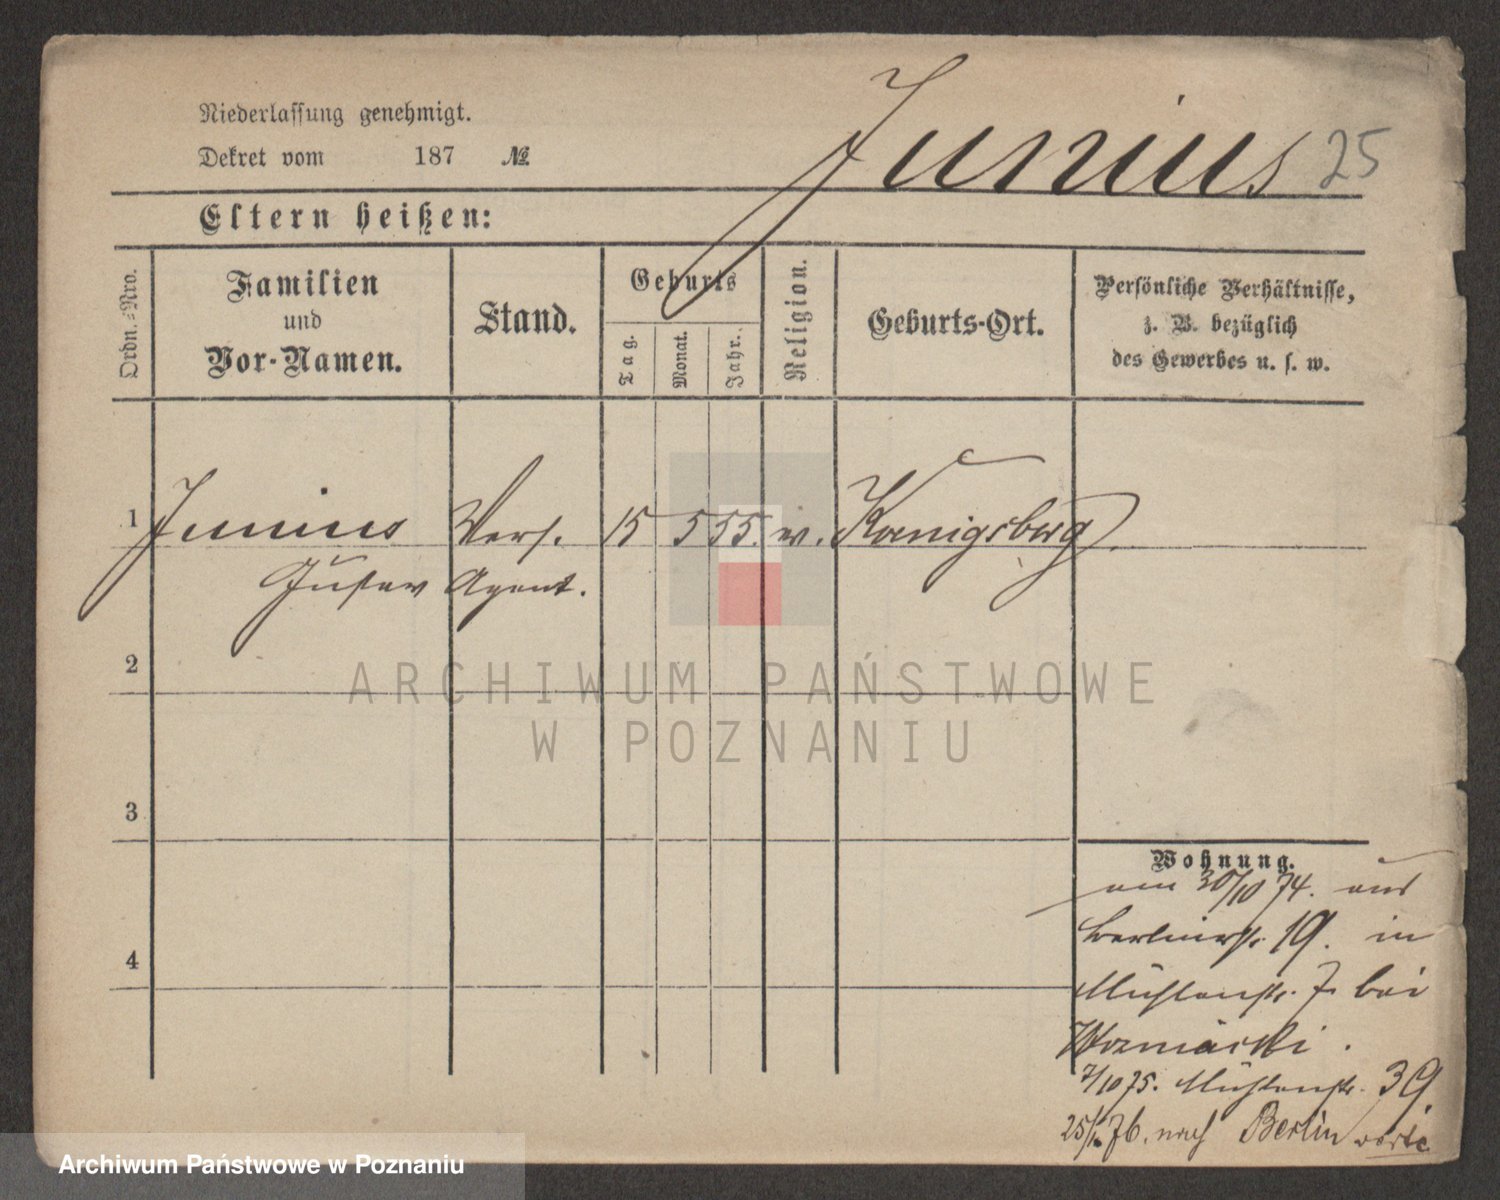 Niederlassung genehmigt.
Junius 25
Dekret vom 187 №
Eltern heißen:
Ordn.-Nro.
Familien
und
Vor-Namen.
Stand.
Geburts
Tag.
Monat.
Jahr.
Religion.
Geburts-Ort.
Persönliche Verhältnisse,
z. B. bezüglich
des Gewerbes u. s. w.
1 Junius Vers. 15 5 55. ev. Koenigsberg
Gustav Agent.
2
ARCHIWUM PAŃSTWOWE
W POZNANIU
3
Wohnung.
am 30/10 74. aus
Berlinerstr. 19. in
4
Mühlenstr. 7 bei
7/10 75. Mühlenstr. 39.
25/1. 76. nach Berlin
Archiwum Państwowe w Poznaniu